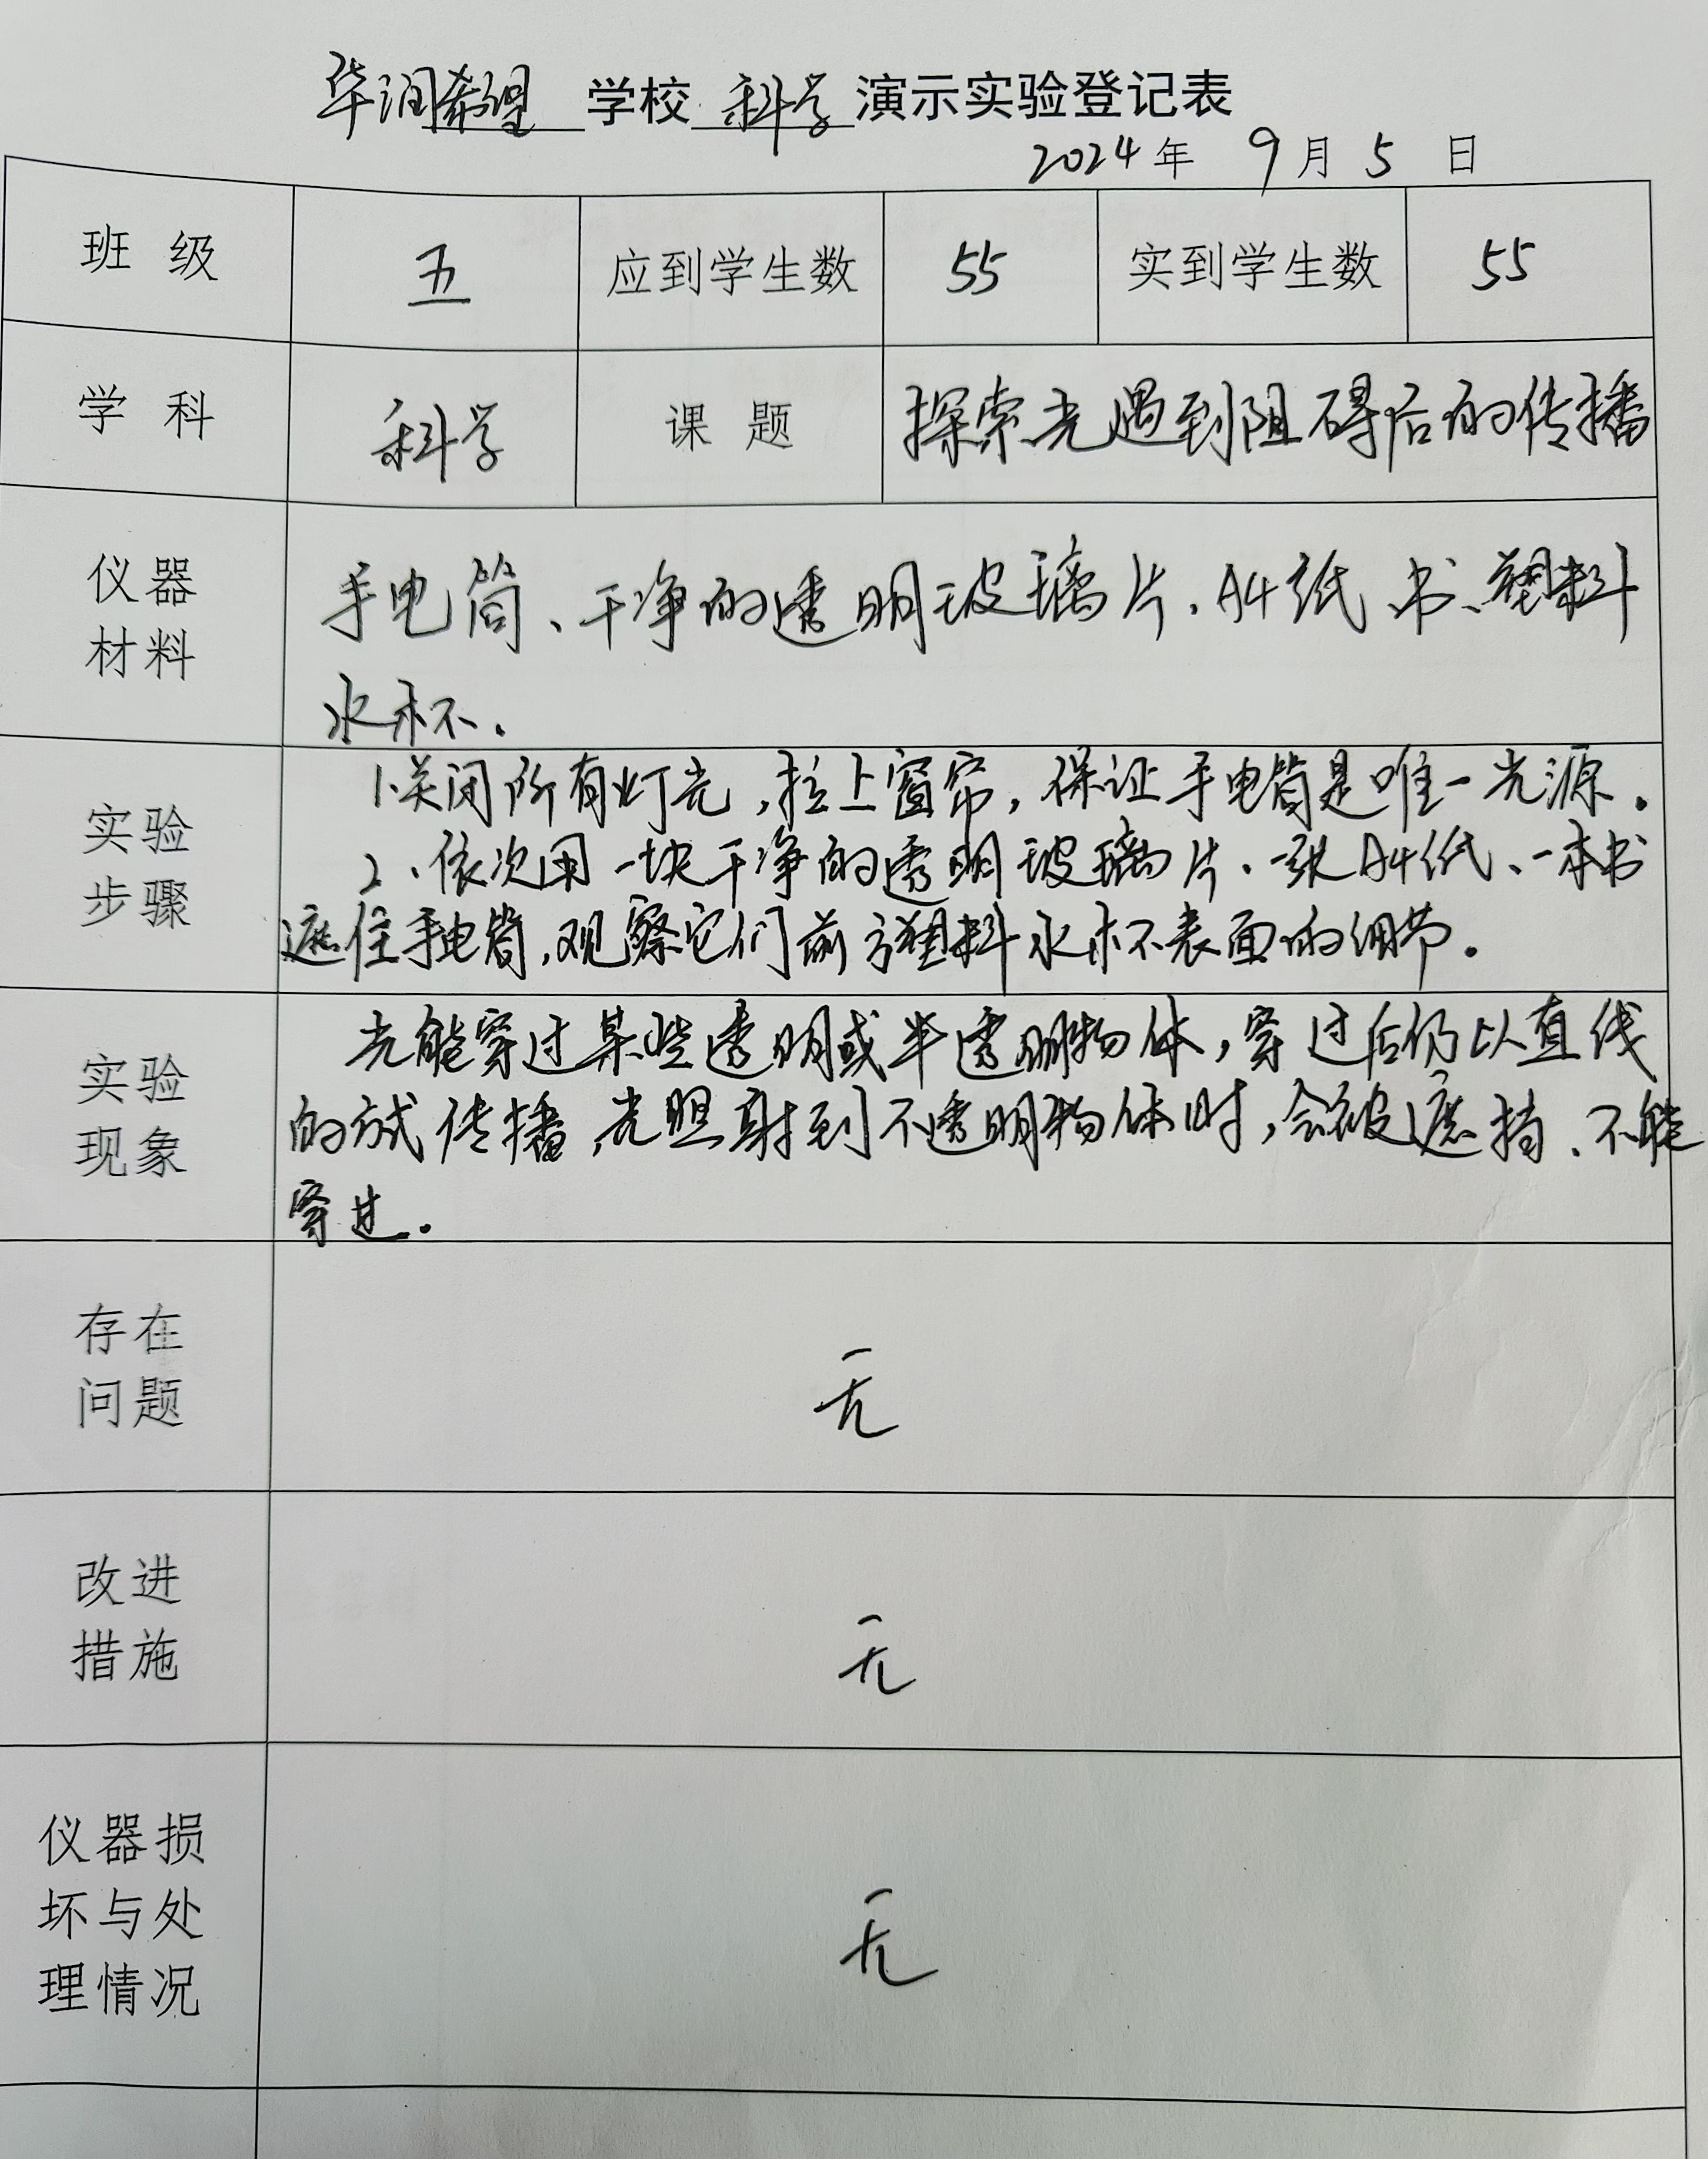 华润希望 学校 科学 演示实验登记表
2024 年 9 月 5 日
班 级 五 应到学生数 55 实到学生数 55
学 科 科学 课 题 探索光遇到阻碍后的传播
仪器
材料
手电筒、干净的透明玻璃片、A4纸、书、塑料
水杯.
实验
步骤
1.关闭所有灯光,拉上窗帘,保证手电筒是唯一光源.
2、依次用一块干净的透明玻璃片、一张A4纸、一本书
遮住手电筒,观察它们前方塑料水杯表面的细节.
实验
现象
光能穿过某些透明或半透明物体,穿过后仍以直线
的方式传播,光照射到不透明物体时,会被遮挡、不能
穿过.
存在
问题
无
改进
措施
无
仪器损
坏与处
理情况
无